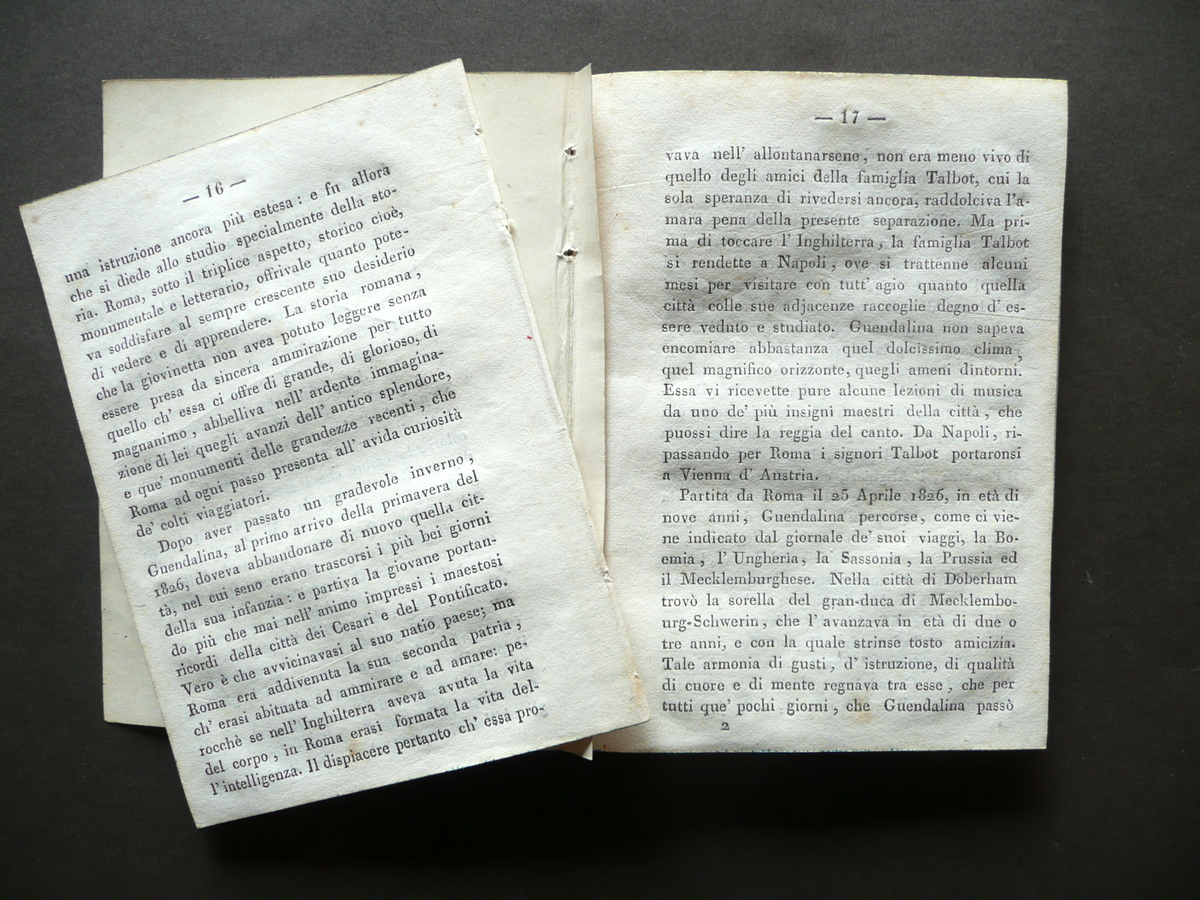 — 16 —
una istruzione ancora più estesa: e fu allora
che si diede allo studio specialmente della sto-
ria. Roma, sotto il triplice aspetto, storico cioè,
monumentale e letterario, offrivale quanto pote-
va soddisfare al sempre crescente suo desiderio
di vedere e di apprendere. La storia romana,
che la giovinetta non avea potuto leggere senza
essere presa da sincera ammirazione per tutto
quello ch' essa ci offre di grande, di glorioso, di
magnanimo, abbelliva nell' ardente immagina-
zione di lei quegli avanzi dell' antico splendore,
e que' monumenti delle grandezze recenti, che
Roma ad ogni passo presenta all' avida curiosità
de' colti viaggiatori.
Dopo aver passato un gradevole inverno,
Guendalina, al primo arrivo della primavera del
1826, doveva abbandonare di nuovo quella cit-
tà, nel cui seno erano trascorsi i più bei giorni
della sua infanzia: e partiva la giovane portan-
do più che mai nell' animo impressi i maestosi
ricordi della città dei Cesari e del Pontificato.
Vero è che avvicinavasi al suo natio paese; ma
Roma era addivenuta la sua seconda patria,
ch' erasi abituata ad ammirare e ad amare: pe-
rocchè se nell' Inghilterra aveva avuta la vita
del corpo, in Roma erasi formata la vita del-
l'intelligenza. Il dispiacere pertanto ch' essa pro-
— 17 —
vava nell' allontanarsene, non era meno vivo di
quello degli amici della famiglia Talbot, cui la
sola speranza di rivedersi ancora, raddolciva l'a-
mara pena della presente separazione. Ma pri-
ma di toccare l' Inghilterra, la famiglia Talbot
si rendette a Napoli, ove si trattenne alcuni
mesi per visitare con tutt' agio quanto quella
città colle sue adjacenze raccoglie degno d' es-
sere veduto e studiato. Guendalina non sapeva
encomiare abbastanza quel dolcissimo clima,
quel magnifico orizzonte, quegli ameni dintorni.
Essa vi ricevette pure alcune lezioni di musica
da uno de' più insigni maestri della città, che
puossi dire la reggia del canto. Da Napoli, ri-
passando per Roma i signori Talbot portaronsi
a Vienna d' Austria.
Partita da Roma il 25 Aprile 1826, in età di
nove anni, Guendalina percorse, come ci vie-
ne indicato dal giornale de' suoi viaggi, la Bo-
emia, l' Ungheria, la Sassonia, la Prussia ed
il Mecklemburghese. Nella città di Doberham
trovò la sorella del gran-duca di Mecklembo-
urg-Schwerin, che l' avanzava in età di due o
tre anni, e con la quale strinse tosto amicizia.
Tale armonia di gusti, d' istruzione, di qualità
di cuore e di mente regnava tra esse, che per
tutti que' pochi giorni, che Guendalina passò
2